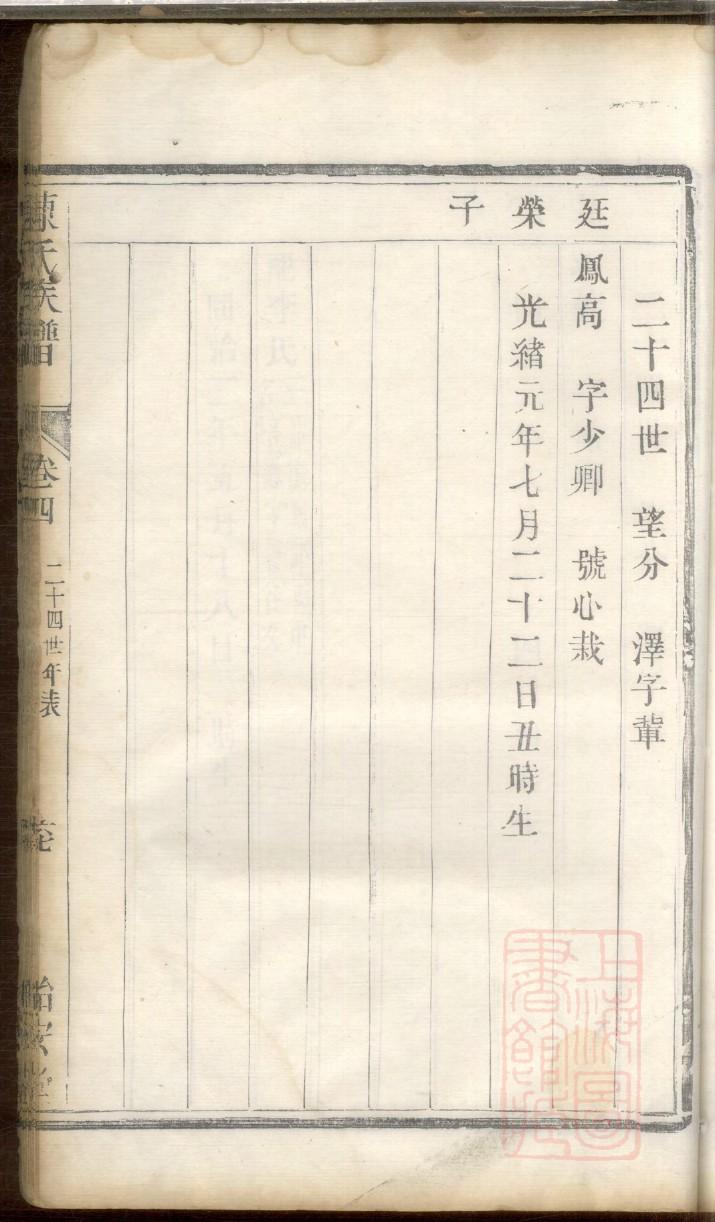 二十四世 望分 澤字輩
廷
鳳高 字少卿 號心栽
榮
光緒元年七月二十二日丑時生
子
氏族譜
卷四
二十四世年表
上海圖書館藏